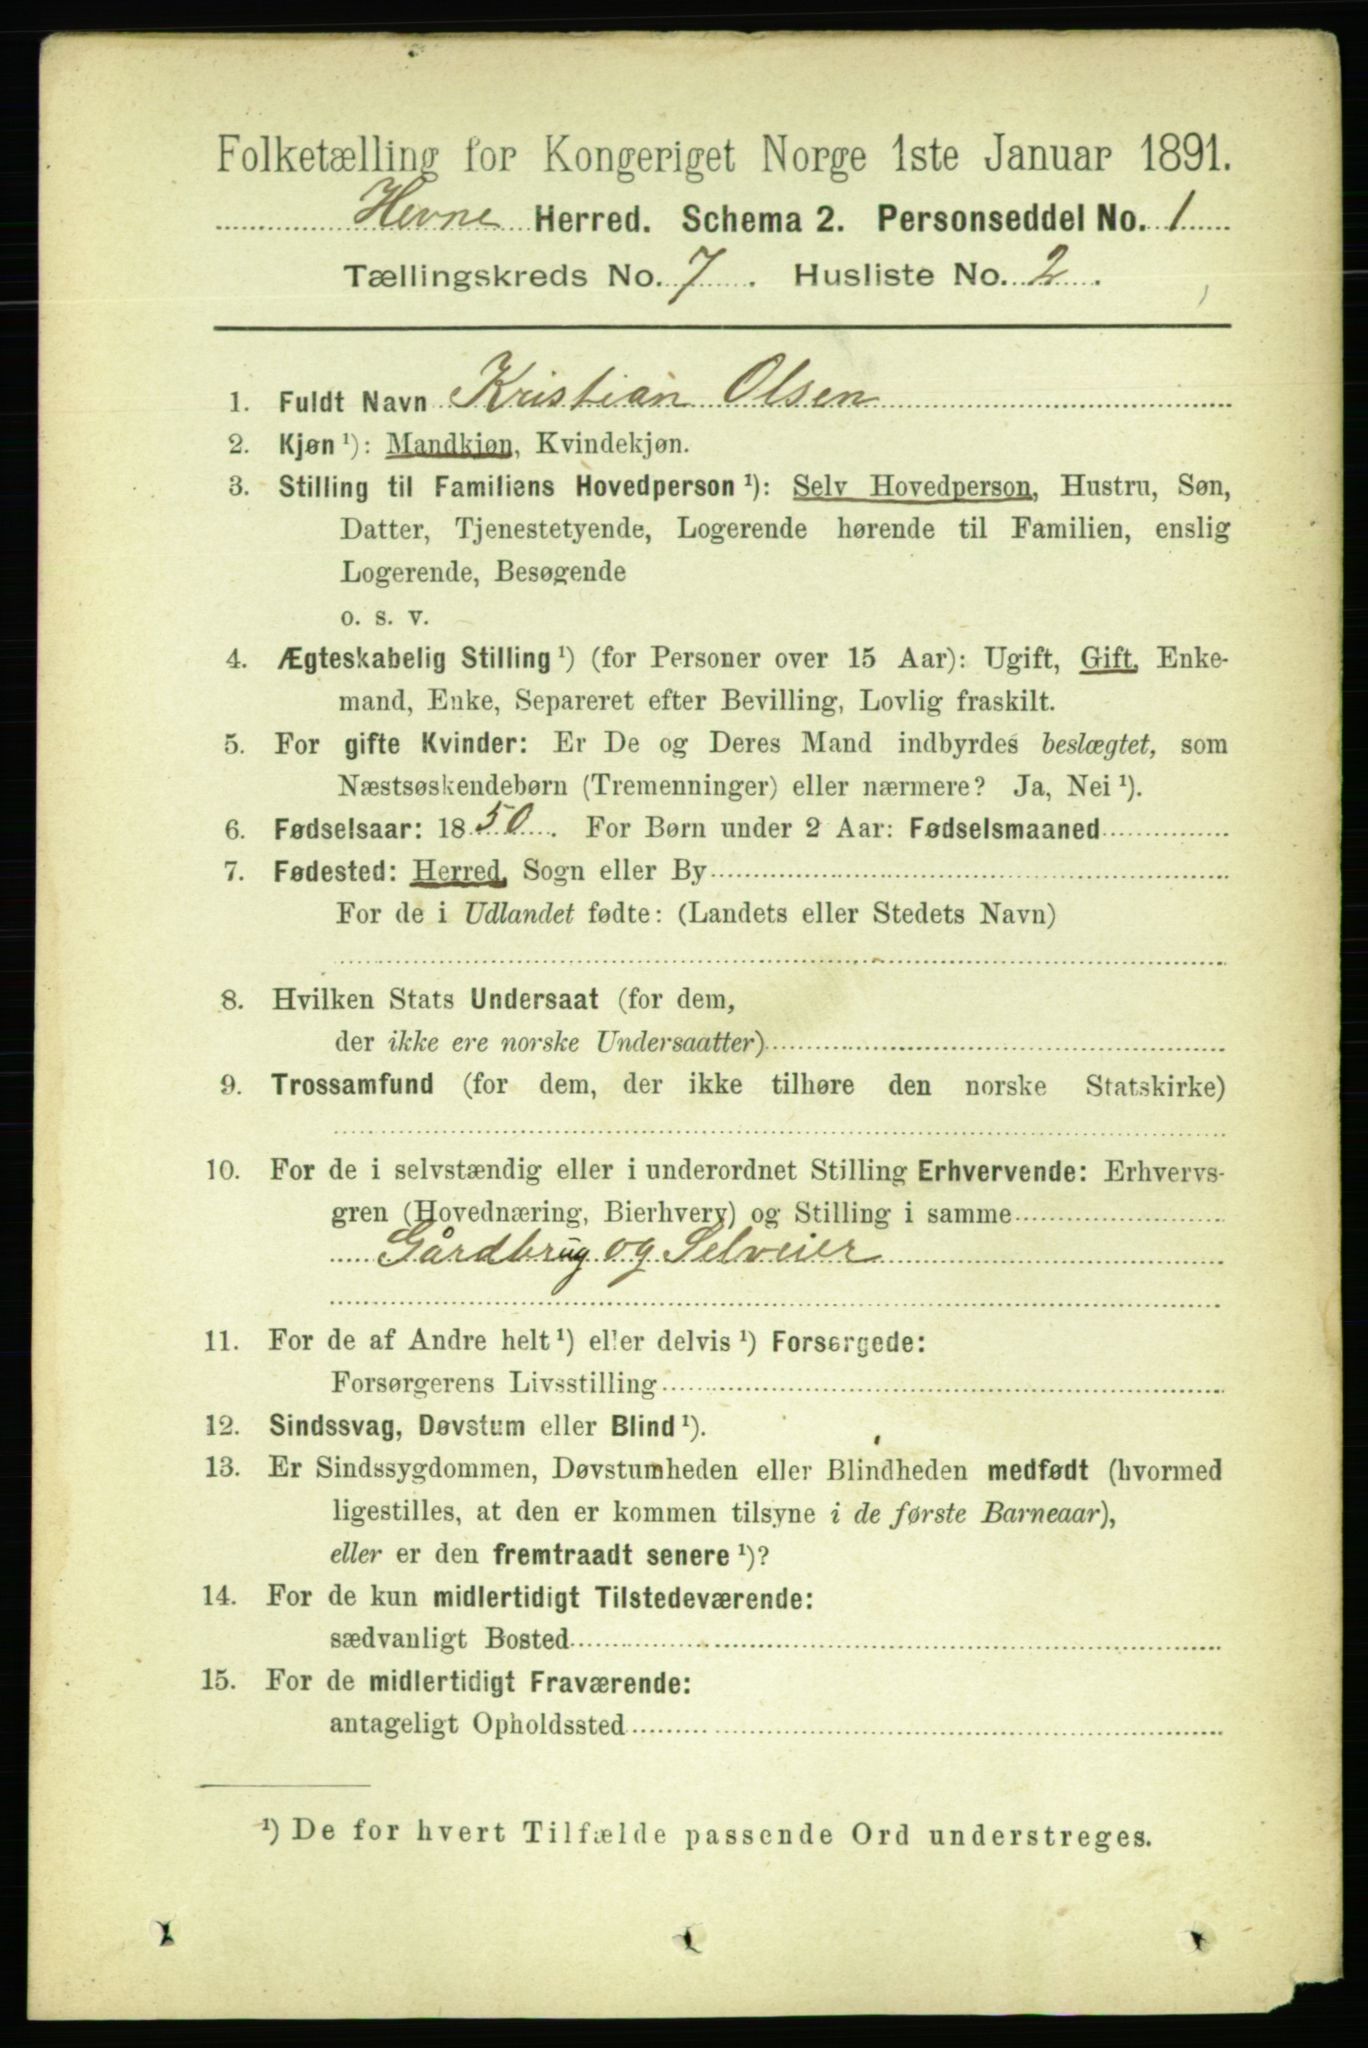 Folketælling for Kongeriget Norge 1ste Januar 1891.
Hevne Herred. Schema 2. Personseddel No. 1
Tællingskreds No. 7. Husliste No. 2.
1. Fuldt Navn Kristian Olsen
2. Kjøn¹): Mandkjøn, Kvindekjøn.
3. Stilling til Familiens Hovedperson¹): Selv Hovedperson, Hustru, Søn,
Datter, Tjenestetyende, Logerende hørende til Familien, enslig
Logerende, Besøgende
o. s. v.
4. Ægteskabelig Stilling¹) (for Personer over 15 Aar): Ugift, Gift, Enke-
mand, Enke, Separeret efter Bevilling, Lovlig fraskilt.
5. For gifte Kvinder: Er De og Deres Mand indbyrdes beslægtet, som
Næstsøskendebørn (Tremenninger) eller nærmere? Ja, Nei¹).
6. Fødselsaar: 1850. For Børn under 2 Aar: Fødselsmaaned
7. Fødested: Herred, Sogn eller By
For de i Udlandet fødte: (Landets eller Stedets Navn)
8. Hvilken Stats Undersaat (for dem,
der ikke ere norske Undersaatter)
9. Trossamfund (for dem, der ikke tilhøre den norske Statskirke)
10. For de i selvstændig eller i underordnet Stilling Erhvervende: Erhvervs-
gren (Hovednæring, Bierhverv) og Stilling i samme
Gårdbrug og Selveier
11. For de af Andre helt¹) eller delvis¹) Forsørgede:
Forsørgerens Livsstilling
12. Sindssvag, Døvstum eller Blind¹).
13. Er Sindssygdommen, Døvstumheden eller Blindheden medfødt (hvormed
ligestilles, at den er kommen tilsyne i de første Barneaar),
eller er den fremtraadt senere¹)?
14. For de kun midlertidigt Tilstedeværende:
sædvanligt Bosted
15. For de midlertidigt Fraværende:
antageligt Opholdssted
¹) De for hvert Tilfælde passende Ord understreges.